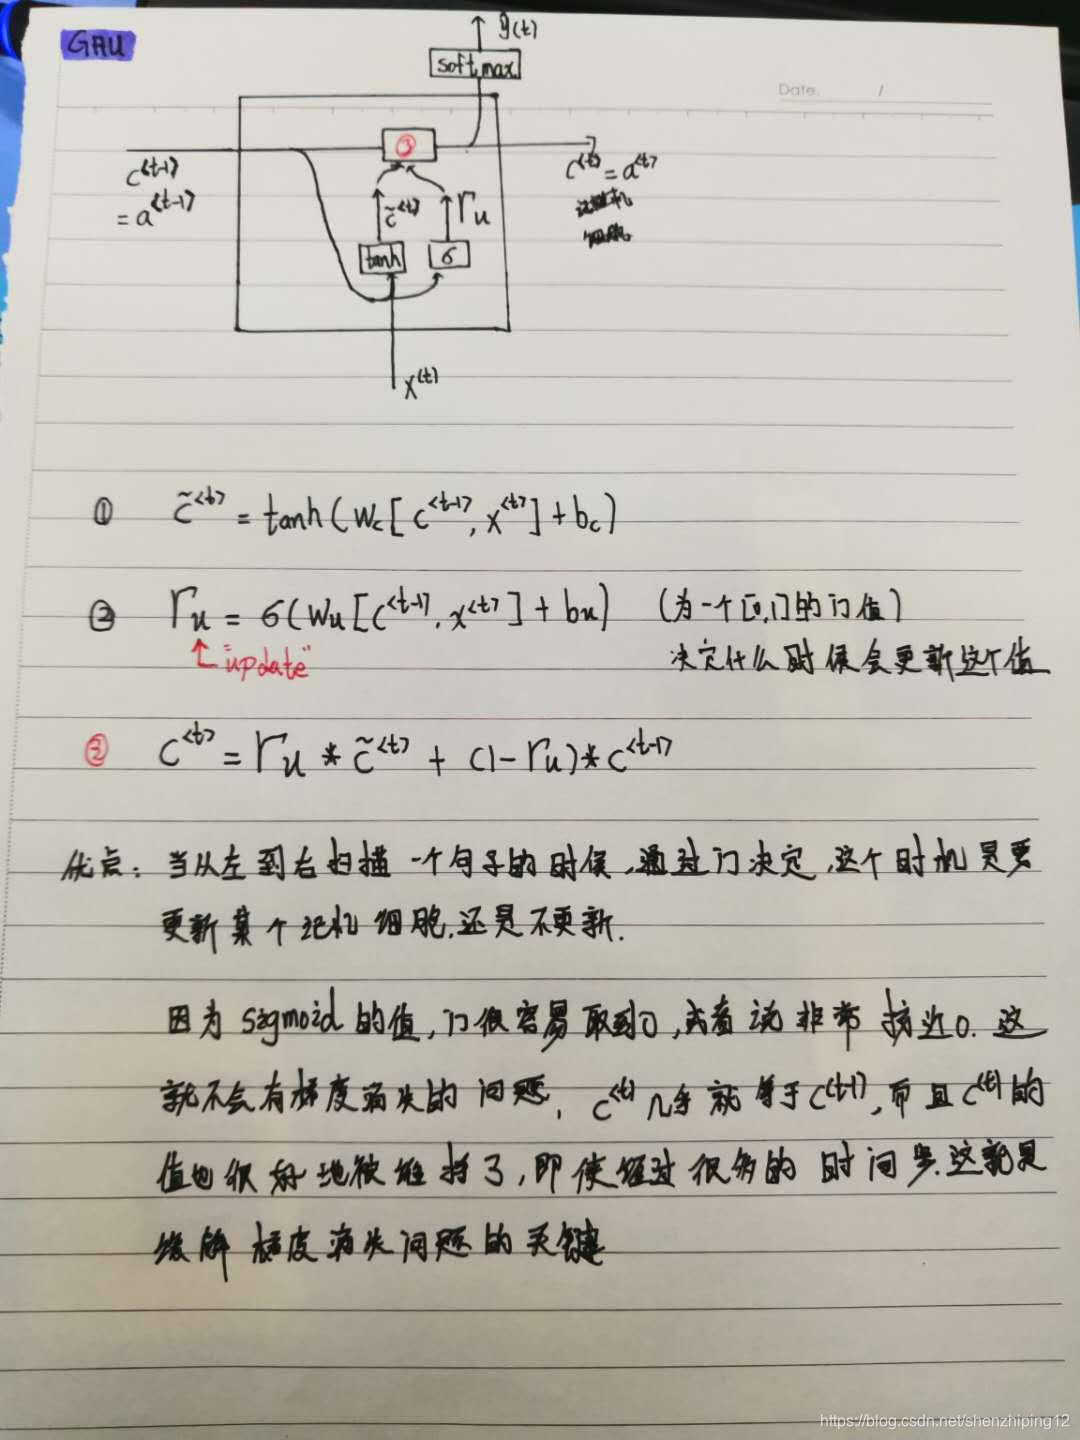 GAU
Date. /
y(t)
softmax
③
c<t-1>
= a<t-1>
c<t> = a<t>
细胞
c̃<t>
Γu
tanh
σ
x(t)
① c̃<t> = tanh(Wc[c<t-1>, x<t>] + bc)
② Γu = σ(Wu[c<t-1>, x<t>] + bu) (为一个[0,1]的门值)
"update"
决定什么时候会更新这个值
③ c<t> = Γu * c̃<t> + (1-Γu) * c<t-1>
优点: 当从左到右扫描一个句子的时候,通过门决定,这个时机是要
更新某个记忆细胞,还是不更新.
因为sigmoid的值,门很容易取到0,或者说非常接近0.这
就不会有梯度消失的问题, c<t>几乎就等于c<t-1>,而且c<t>的
值也很好地被维持了,即使经过很多的时间步.这就是
缓解梯度消失问题的关键
https://blog.csdn.net/shenzhiping12